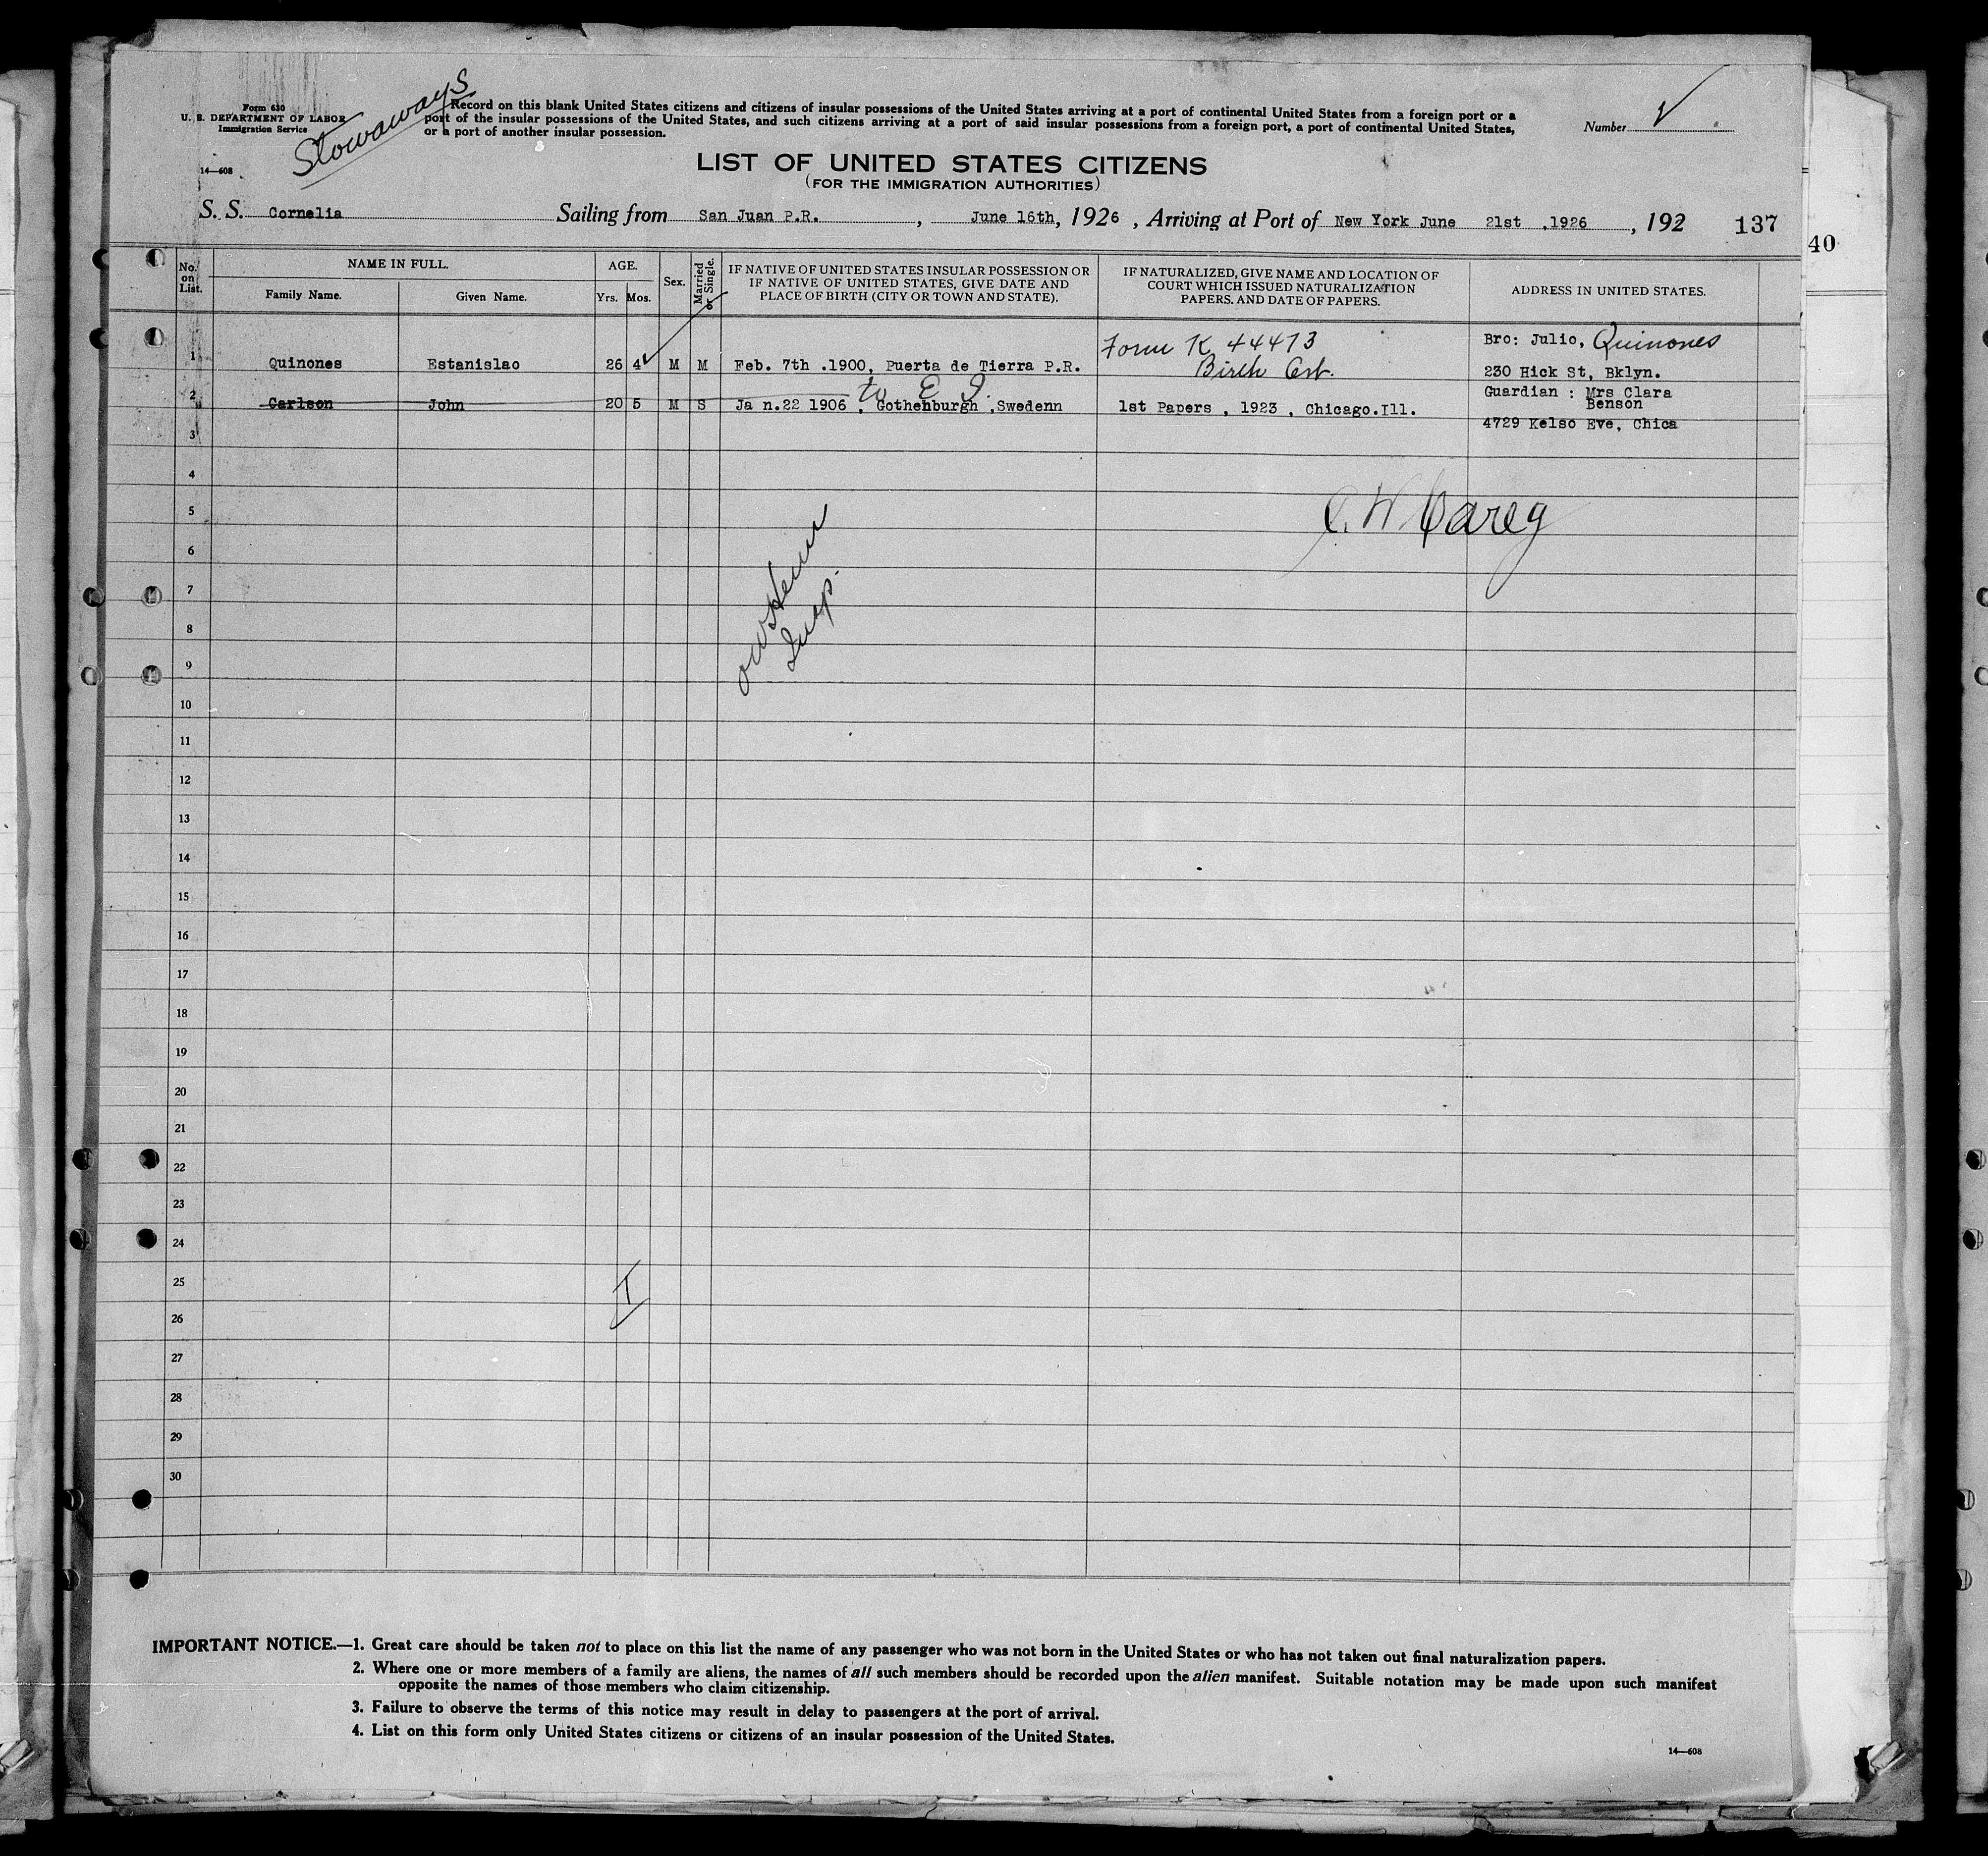 Form 630
U. S. DEPARTMENT OF LABOR
Immigration Service
Stowaways
Record on this blank United States citizens and citizens of insular possessions of the United States arriving at a port of continental United States from a foreign port or a
port of the insular possessions of the United States, and such citizens arriving at a port of said insular possessions from a foreign port, a port of continental United States,
or a port of another insular possession.
Number
14—608
LIST OF UNITED STATES CITIZENS
(FOR THE IMMIGRATION AUTHORITIES)
S. S. Cornelia Sailing from San Juan P.R. , June 16th, 1926 , Arriving at Port of New York June 21st ,1926 , 192 137
40
No. on List.
NAME IN FULL.
Family Name. Given Name.
AGE.
Yrs. Mos.
Sex.
Married or Single.
IF NATIVE OF UNITED STATES INSULAR POSSESSION OR
IF NATIVE OF UNITED STATES, GIVE DATE AND
PLACE OF BIRTH (CITY OR TOWN AND STATE).
IF NATURALIZED, GIVE NAME AND LOCATION OF
COURT WHICH ISSUED NATURALIZATION
PAPERS, AND DATE OF PAPERS.
ADDRESS IN UNITED STATES.
Form K 44473
Bro: Julio, Quinones
1 Quinones Estanislao 26 4 M M Feb. 7th .1900, Puerta de Tierra P.R. Birth Cert. 230 Hick St, Bklyn.
to
Guardian : Mrs Clara
Benson
2 Carlson John 20 5 M S Ja n.22 1906 , Gothenburgh ,Swedenn 1st Papers , 1923 , Chicago.Ill.
3 4729 Kelso Eve, Chica
4
5 Carey
6
7
Insp.
8
9
10
11
12
13
14
15
16
17
18
19
20
21
22
23
24
25
26
27
28
29
30
IMPORTANT NOTICE.—1. Great care should be taken not to place on this list the name of any passenger who was not born in the United States or who has not taken out final naturalization papers.
2. Where one or more members of a family are aliens, the names of all such members should be recorded upon the alien manifest. Suitable notation may be made upon such manifest
opposite the names of those members who claim citizenship.
3. Failure to observe the terms of this notice may result in delay to passengers at the port of arrival.
4. List on this form only United States citizens or citizens of an insular possession of the United States.
14—608